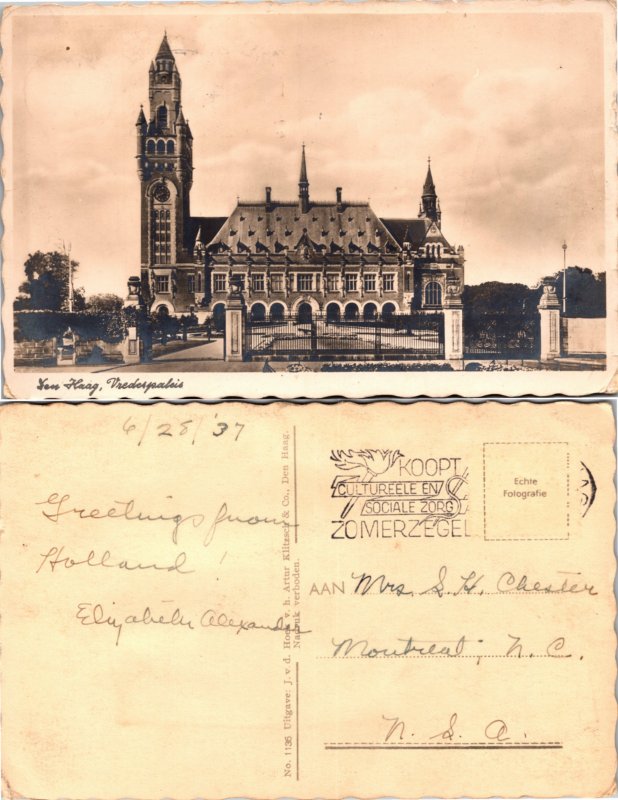 Den Haag, Vredespaleis
6/28/'37
Greetings from
Holland!
Elizabeth Alexander
No. 1135 Uitgave: J. v. d. Hoek v. h. Artur Klitzsch & Co., Den Haag.
Nadruk verboden.
KOOPT
CULTUREELE EN
SOCIALE ZORG
ZOMERZEGEL
Echte
Fotografie
AAN Mrs S. H. Chester
Montreat, N. C.
U. S. A.